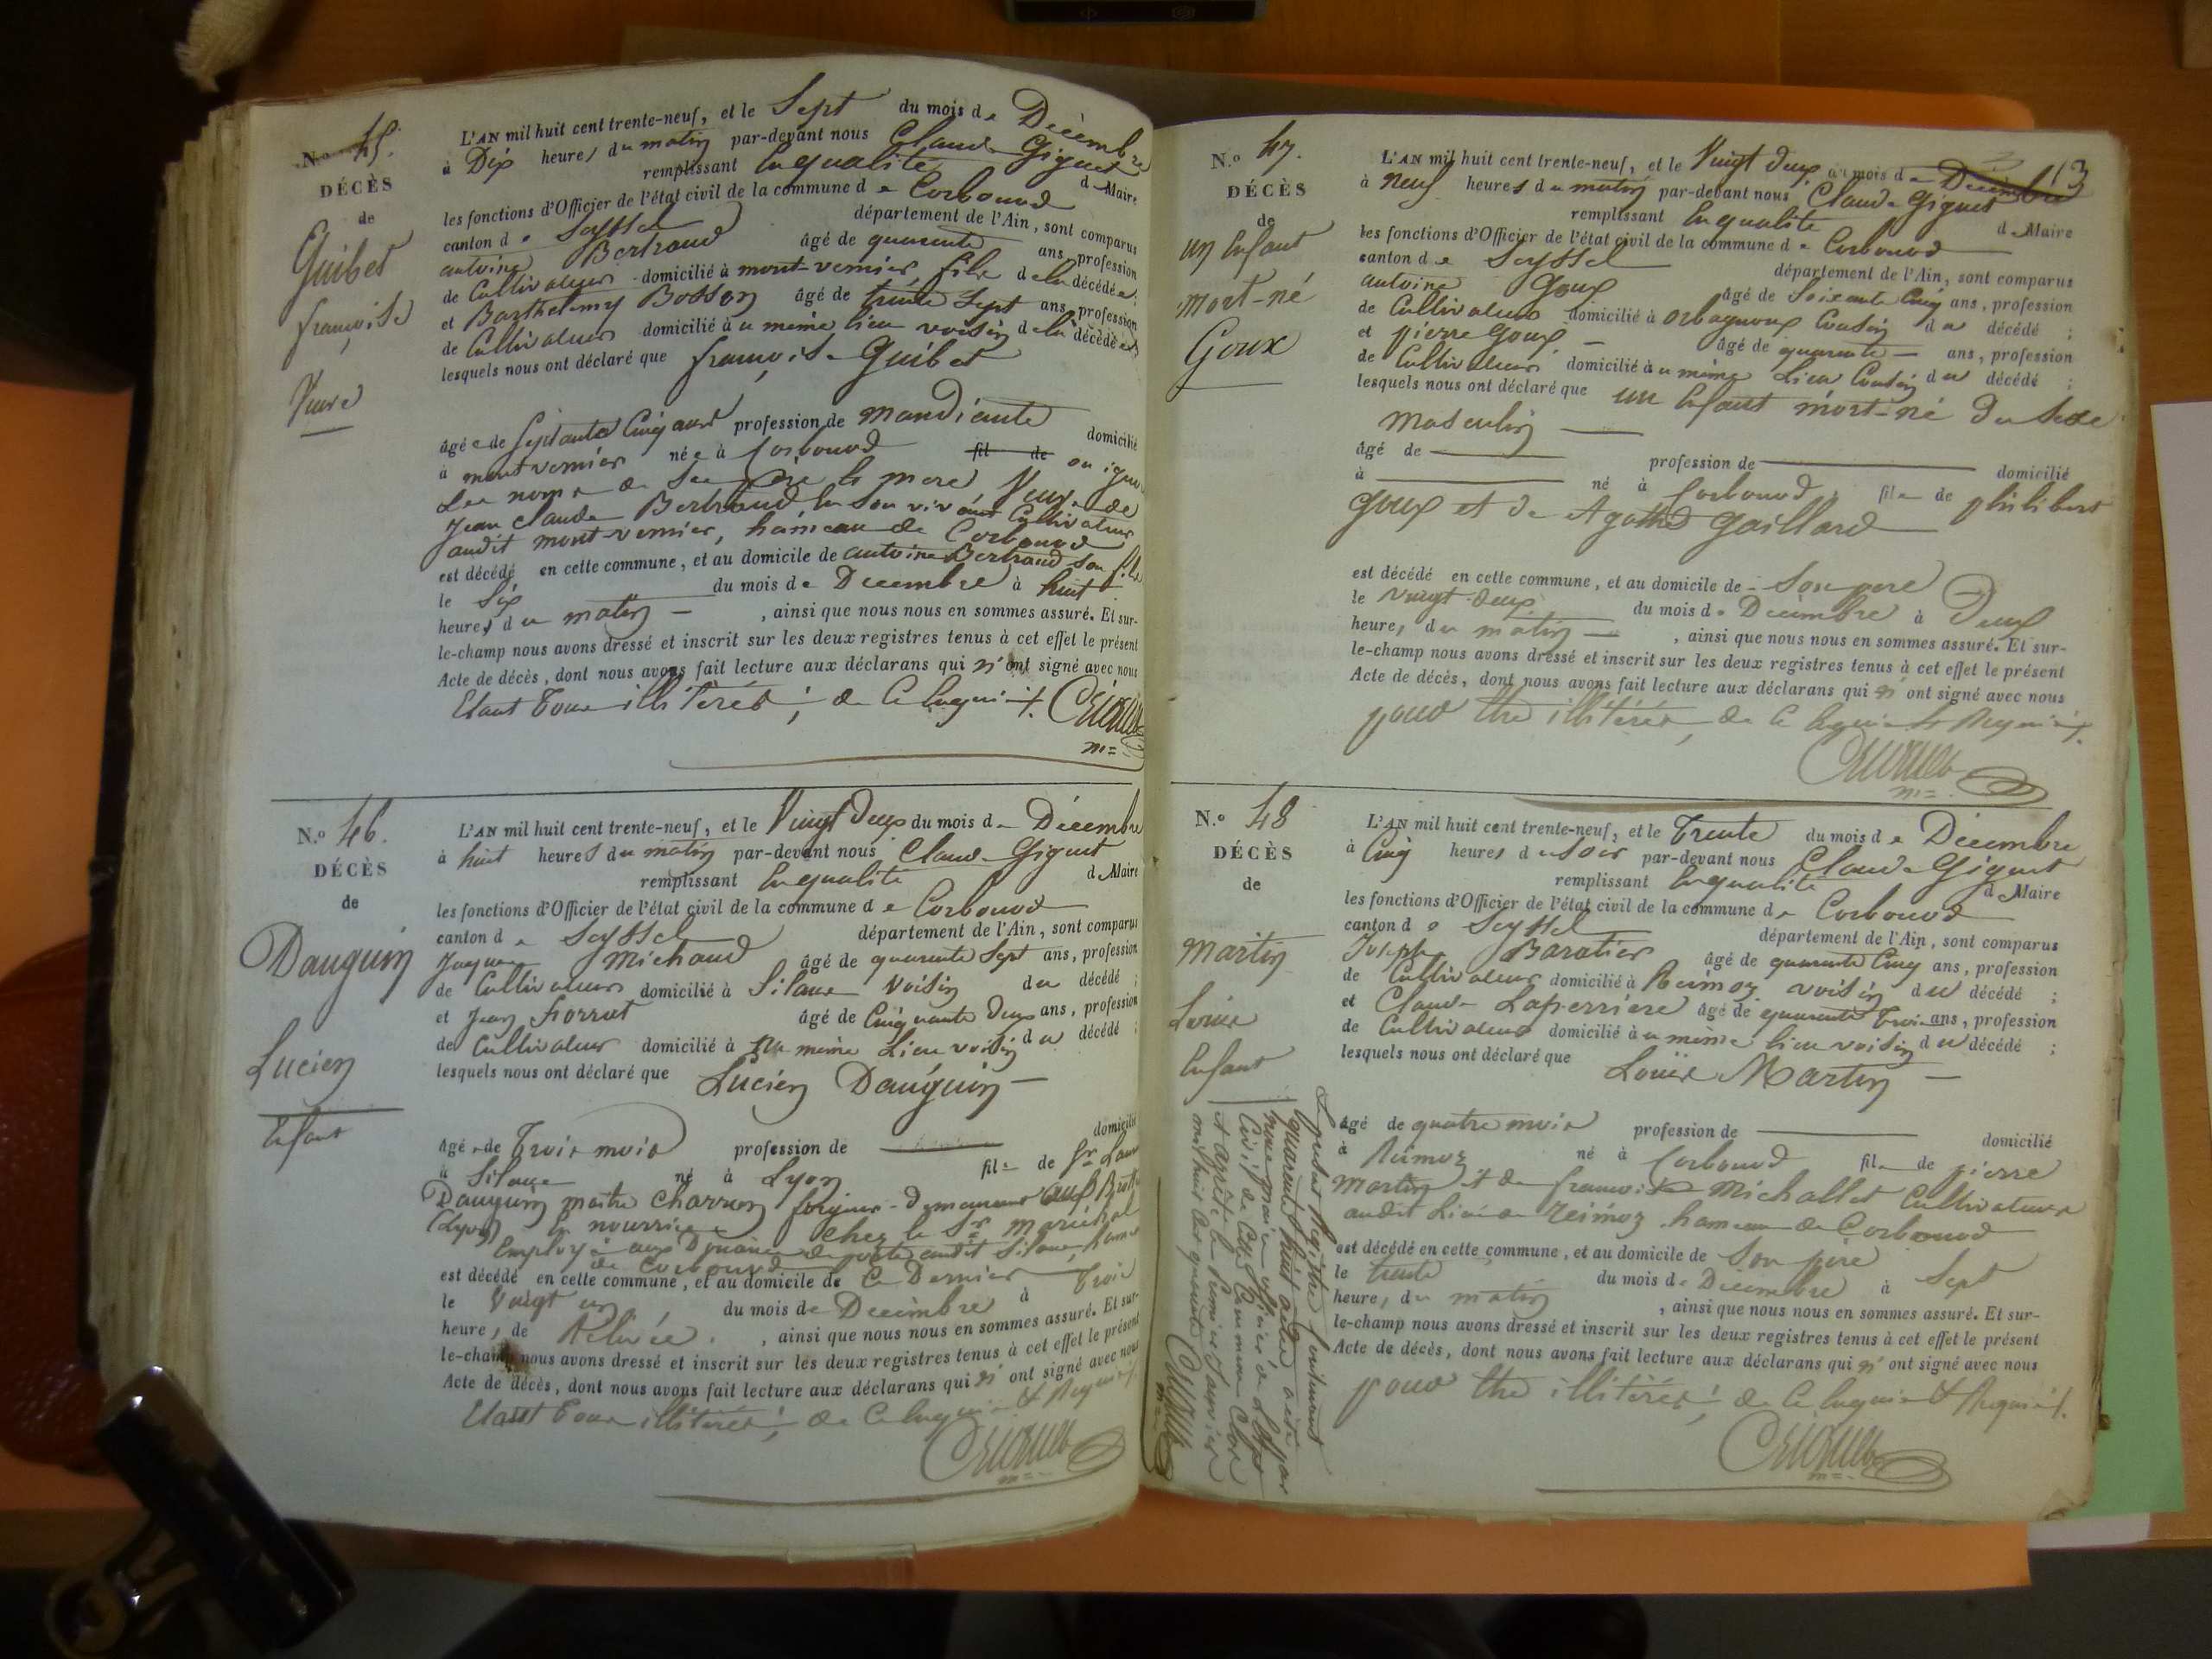 N.º 45.
DÉCÈS
de
Guibet
françoise
Veuve
L'AN mil huit cent trente-neuf, et le Sept du mois de Décembre
à Dix heures du matin par-devant nous Claude Giguet
remplissant en qualité de Maire
les fonctions d'Officier de l'état civil de la commune de Corbonod
canton de Seyssel département de l'Ain, sont comparus
antoine Bertrand âgé de quarante ans, profession
de Cultivateur domicilié à mont-vernier, fils de la décédée;
et Barthelemy Bosson âgé de trente sept ans, profession
de Cultivateur domicilié au même lieu voisin de la décédée;
lesquels nous ont déclaré que françoise Guibet
âgée de septante Cinq ans profession de mandiante domicilié
à mont vernier née à Corbonod fil de on ignore
Les noms de Ses père & mere Veuve de
Jean Claude Bertrand en Son vivant Cultivateur
audit mont-vernier, hameau de Corbonod
est décédé en cette commune, et au domicile de antoine Bertrand son fils
le Six du mois de Décembre à huit
heures du matin , ainsi que nous nous en sommes assuré. Et sur-
le-champ nous avons dressé et inscrit sur les deux registres tenus à cet effet le présent
Acte de décès, dont nous avons fait lecture aux déclarans qui n'ont signé avec nous
Etant Tous illitérés; de Ce Enquis.
N.º 46.
DÉCÈS
de
Dauguin
Lucien
Enfant
L'AN mil huit cent trente-neuf, et le Vingt Deux du mois de Décembre
à huit heures du matin par-devant nous Claude Giguet
remplissant en qualité de Maire
les fonctions d'Officier de l'état civil de la commune de Corbonod
canton de Seyssel département de l'Ain, sont comparus
Jacques Michaud âgé de quarante Sept ans, profession
de Cultivateur domicilié à Silans Voisin du décédé;
et Jean âgé de Cinquante Deux ans, profession
de Cultivateur domicilié à au même Lieu voisin du décédé;
lesquels nous ont déclaré que Lucien Dauguin
âgé de Trois mois profession de domicilié
à Silans né à Lyon fils de
Dauguin maitre Charron forgeur demeurant aux
(Lyon) En nourrice chez le Sr maréchal
Employé aux Douanes de poste audit Silans, hameau
de Corbonod
est décédé en cette commune, et au domicile de Ce Dernier
le Vingt un du mois de Décembre à Trois
heures de Relevée. , ainsi que nous nous en sommes assuré. Et sur-
le-champ nous avons dressé et inscrit sur les deux registres tenus à cet effet le présent
Acte de décès, dont nous avons fait lecture aux déclarans qui n'ont signé avec nous
Etant Tous illitérés; de Ce Enquis & Requis.
13
N.º 47.
DÉCÈS
de
un Enfant
mort-né
Goux
L'AN mil huit cent trente-neuf, et le Vingt Deux du mois de Décembre
à neuf heures du matin par-devant nous Claude Giguet
remplissant En qualité de Maire
les fonctions d'Officier de l'état civil de la commune de Corbonod
canton de Seyssel département de l'Ain, sont comparus
antoine Goux âgé de Soixante Cinq ans, profession
de Cultivateur domicilié à orbagnoux Cousin du décédé;
et pierre Goux âgé de quarante ans, profession
de Cultivateur domicilié au même Lieu Cousin du décédé;
lesquels nous ont déclaré que un Enfant mort-né Du Sexe
Masculin
âgé de profession de domicilié
à né à Corbonod fils de philibert
Goux et de Agathe Gaillard
est décédé en cette commune, et au domicile de Son pere
le vingt-deux du mois de Décembre à Deux
heures du matin , ainsi que nous nous en sommes assuré. Et sur-
le-champ nous avons dressé et inscrit sur les deux registres tenus à cet effet le présent
Acte de décès, dont nous avons fait lecture aux déclarans qui n'ont signé avec nous
pour être illitérés, de Ce Enquis & Requis.
N.º 48
DÉCÈS
de
Martin
Louise
Enfant
L'AN mil huit cent trente-neuf, et le Trente du mois de Décembre
à Cinq heures du Soir par-devant nous Claude Giguet
remplissant En qualité de Maire
les fonctions d'Officier de l'état civil de la commune de Corbonod
canton de Seyssel département de l'Ain, sont comparus
Joseph Baratier âgé de quarante Cinq ans, profession
de Cultivateur domicilié à Reimoz voisin du décédé;
et Claude Laperriere âgé de quarante Trois ans, profession
de Cultivateur domicilié au même lieu voisin du décédé;
lesquels nous ont déclaré que Louise Martin
âgé de quatre mois profession de domicilié
à Reimoz né à Corbonod fil de pierre
Martin et de françoise Michallet Cultivateurs
audit Lieu de Reimoz hameau de Corbonod
est décédé en cette commune, et au domicile de Son père
le trente du mois de Décembre à Sept
heures du matin , ainsi que nous nous en sommes assuré. Et sur-
le-champ nous avons dressé et inscrit sur les deux registres tenus à cet effet le présent
Acte de décès, dont nous avons fait lecture aux déclarans qui n'ont signé avec nous
pour être illitérés; de Ce Enquis & Requis.
Le présent Registre Contenant
quarante huit actes a été par
nous maire officier de l'état
Civil de Cette Commune Clos
et arrêté le premier Janvier
mil huit cent quarante